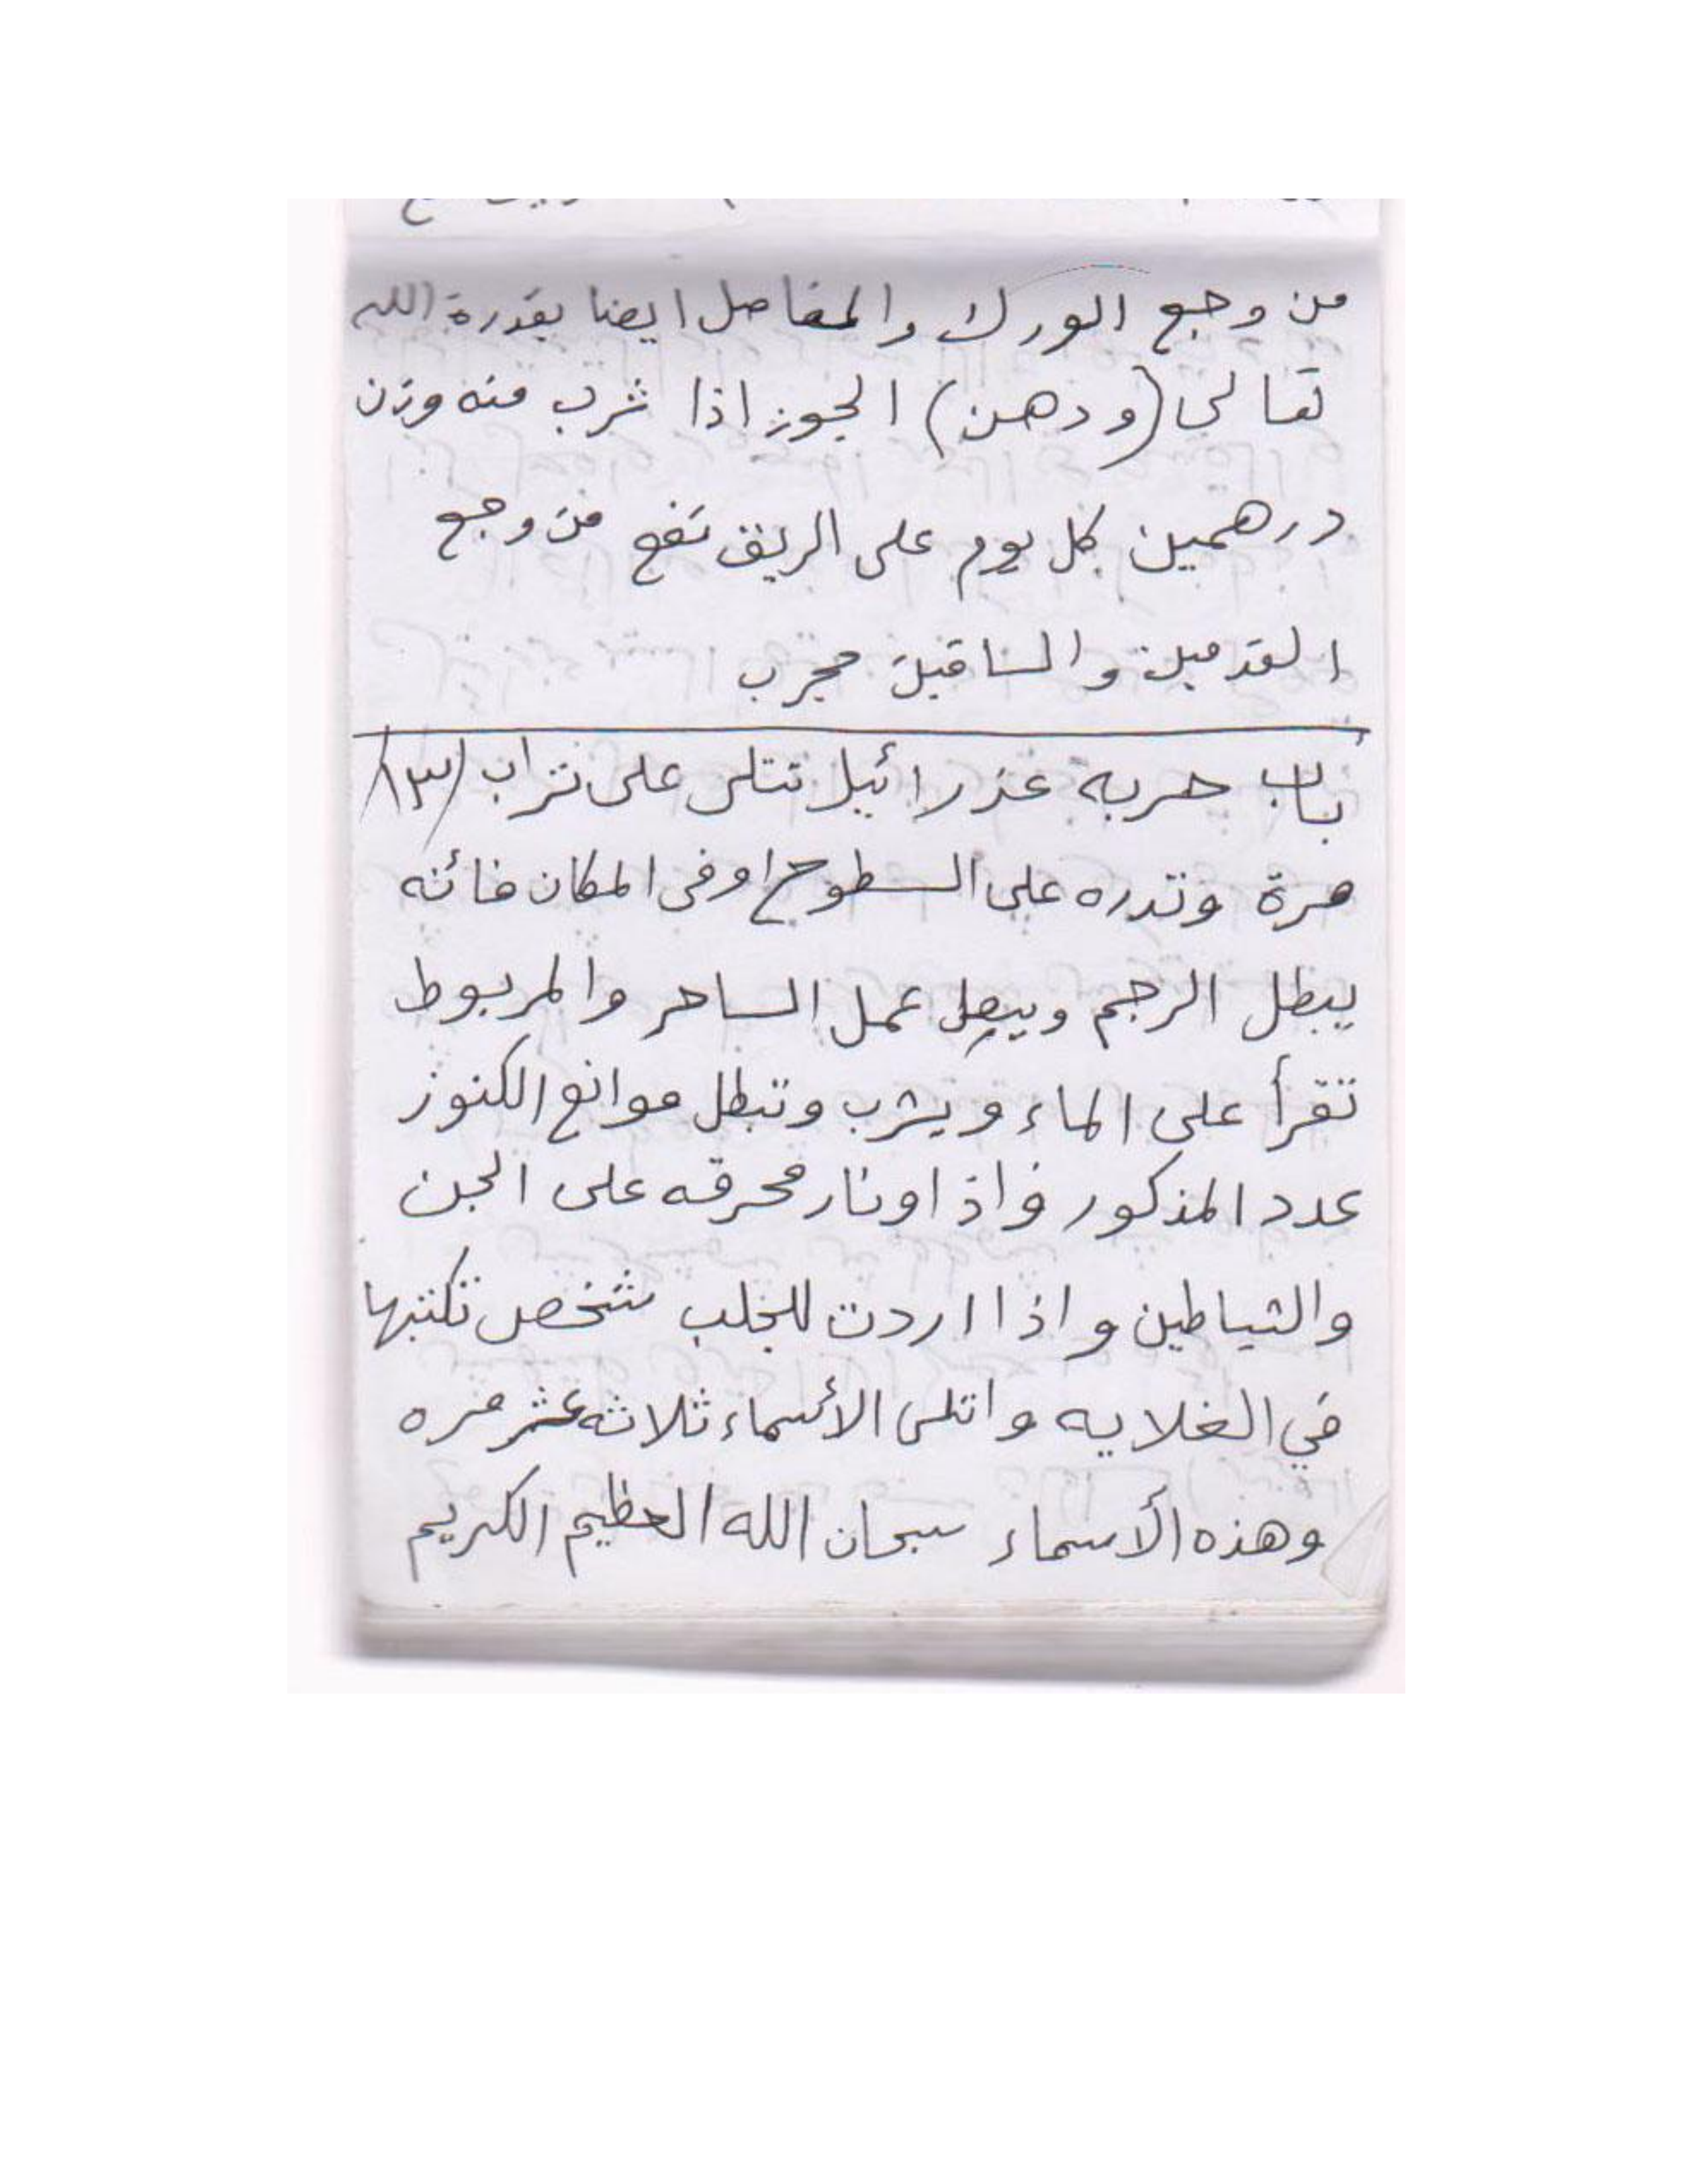 من وجع الورك والمفاصل ايضا بقدرة الله
تعالى (ودهن) الجوز اذا شرب منه وزن
درهمين كل يوم على الريق نفع من وجع
القدمين والساقين مجرب
باب حربه عزرائيل تتلى على تراب (١٣)
مرة وتدره على السطوح او في المكان فائنه
يبطل الرجم ويبطل عمل الساحر والمربوط
تقرأ على الماء ويشرب وتبطل موانع الكنوز
عدد المذكور واذا ونار محرقه على الجن
والشياطين واذا اردت للجلب شخص تكتبها
في الغلايه واتلى الأسماء ثلاثه عشر مره
وهذه الأسماء سبحان الله العظيم الكريم